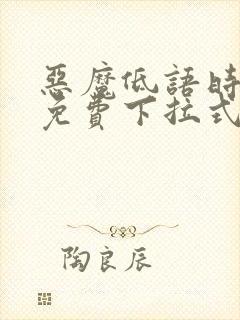 惡魔低語時
免費下拉式
陶良辰